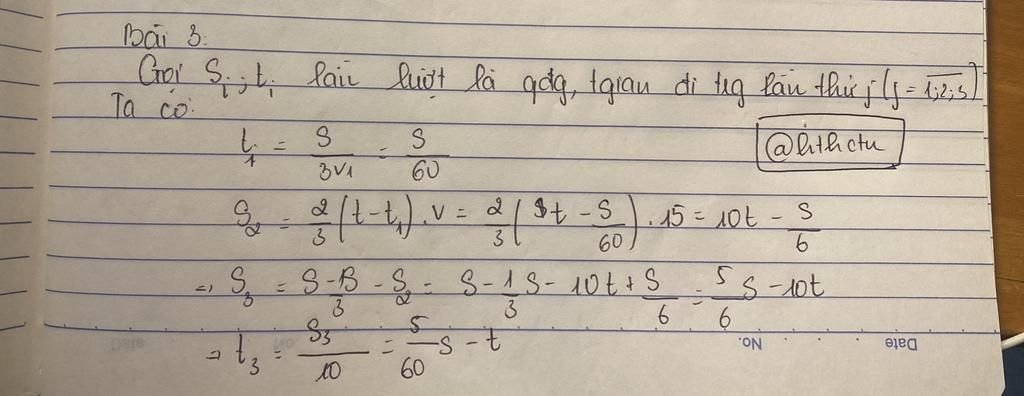 Bài 3.
Gọi S_j, t_j lần lượt là qđg, tgian đi trg lần thứ j (j = 1;2;3)
Ta có:
@hthctu
t_1 = S/3v1 = S/60
S_2 = 2/3 (t - t_1) . v = 2/3 (t - S/60) . 15 = 10t - S/6
=> S_3 = S - 1S/3 - S_2 = S - 1/3 S - 10t + S/6 = 5/6 S - 10t
=> t_3 = S_3/10 = 5/60 S - t
Date No. No. Date